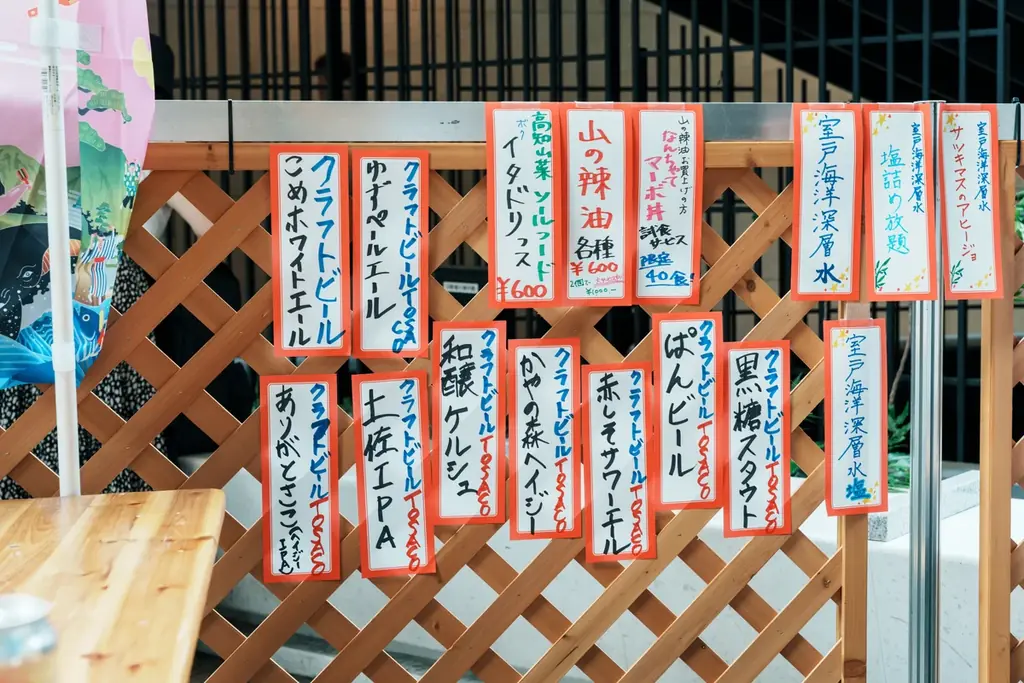 クラフトビール
こめホワイトエール
クラフトビールTOSACO
ゆずペールエール
高知山菜 ソルフード
ボク
イタドリっス
¥600
山の辣油
各種
¥600
2個で
¥1000-
山の辣油お買上げの方
なんちゃって
マーボ丼
試食
サービス
限定
40食
室戸海洋深層水
室戸海洋深層水
塩詰め放題
室戸海洋深層水
サツキマスのアヒージョ
クラフトビールTOSACO
ありがとさここ
ヘイジー
IPA
クラフトビールTOSACO
土佐IPA
クラフトビールTOSACO
和醸ケルシュ
クラフトビールTOSACO
かやの森ヘイジー
クラフトビールTOSACO
赤しそサワーエール
クラフトビールTOSACO
ぱんビール
クラフトビールTOSACO
黒糖スタウト
室戸海洋深層水塩